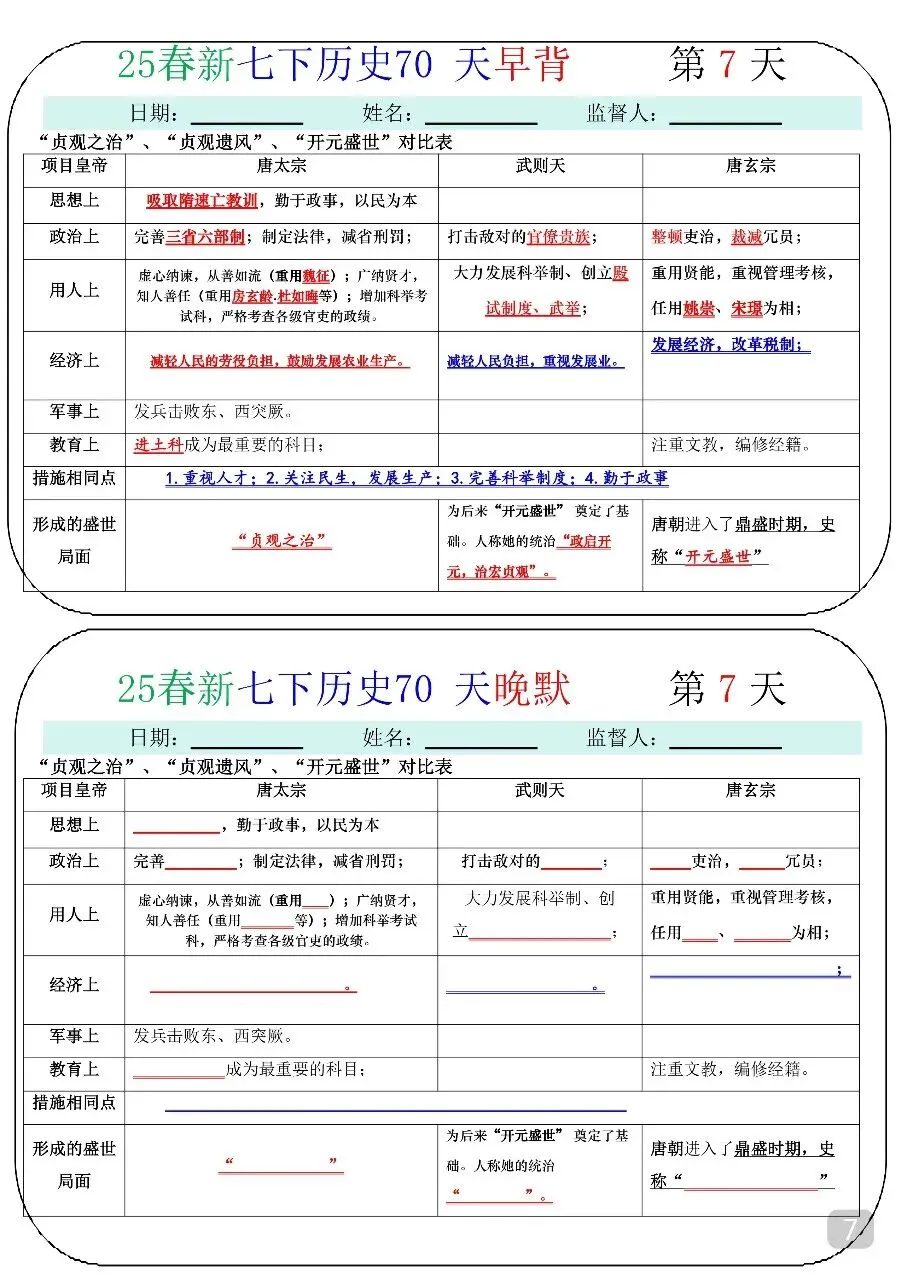 25春新七下历史70 天早背 第 7 天
日期： 姓名： 监督人：
“贞观之治”、“贞观遗风”、“开元盛世”对比表
项目皇帝 唐太宗 武则天 唐玄宗
思想上 吸取隋速亡教训，勤于政事，以民为本
政治上 完善三省六部制；制定法律，减省刑罚； 打击敌对的官僚贵族； 整顿吏治，裁减冗员；
用人上
虚心纳谏，从善如流（重用魏征）；广纳贤才，
知人善任（重用房玄龄.杜如晦等）；增加科举考
试科，严格考查各级官吏的政绩。
大力发展科举制、创立殿
试制度、武举；
重用贤能，重视管理考核，
任用姚崇、宋璟为相；
经济上 减轻人民的劳役负担，鼓励发展农业生产。 减轻人民负担，重视发展业。 发展经济，改革税制；
军事上 发兵击败东、西突厥。
教育上 进士科成为最重要的科目； 注重文教，编修经籍。
措施相同点 1.重视人才；2.关注民生，发展生产；3.完善科举制度；4.勤于政事
形成的盛世
局面
“贞观之治”
为后来“开元盛世” 奠定了基
础。人称她的统治“政启开
元，治宏贞观”。
唐朝进入了鼎盛时期，史
称“开元盛世”
25春新七下历史70 天晚默 第 7 天
日期： 姓名： 监督人：
“贞观之治”、“贞观遗风”、“开元盛世”对比表
项目皇帝 唐太宗 武则天 唐玄宗
思想上 ，勤于政事，以民为本
政治上 完善 ；制定法律，减省刑罚； 打击敌对的 ； 吏治， 冗员；
用人上
虚心纳谏，从善如流（重用 ）；广纳贤才，
知人善任（重用 等）；增加科举考试
科，严格考查各级官吏的政绩。
大力发展科举制、创
立 ；
重用贤能，重视管理考核，
任用 、 为相；
经济上 。 。 ；
军事上 发兵击败东、西突厥。
教育上 成为最重要的科目； 注重文教，编修经籍。
措施相同点
形成的盛世
局面
“ ”
为后来“开元盛世” 奠定了基
础。人称她的统治
“ ”。
唐朝进入了鼎盛时期，史
称“ ”
7